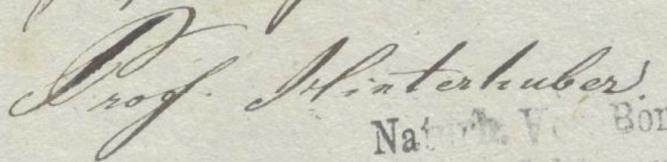 Prof. Hinterhuber.
Naturh. Ver. Bon